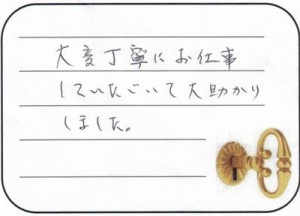 大変丁寧にお仕事
していただいて大助かり
しました。